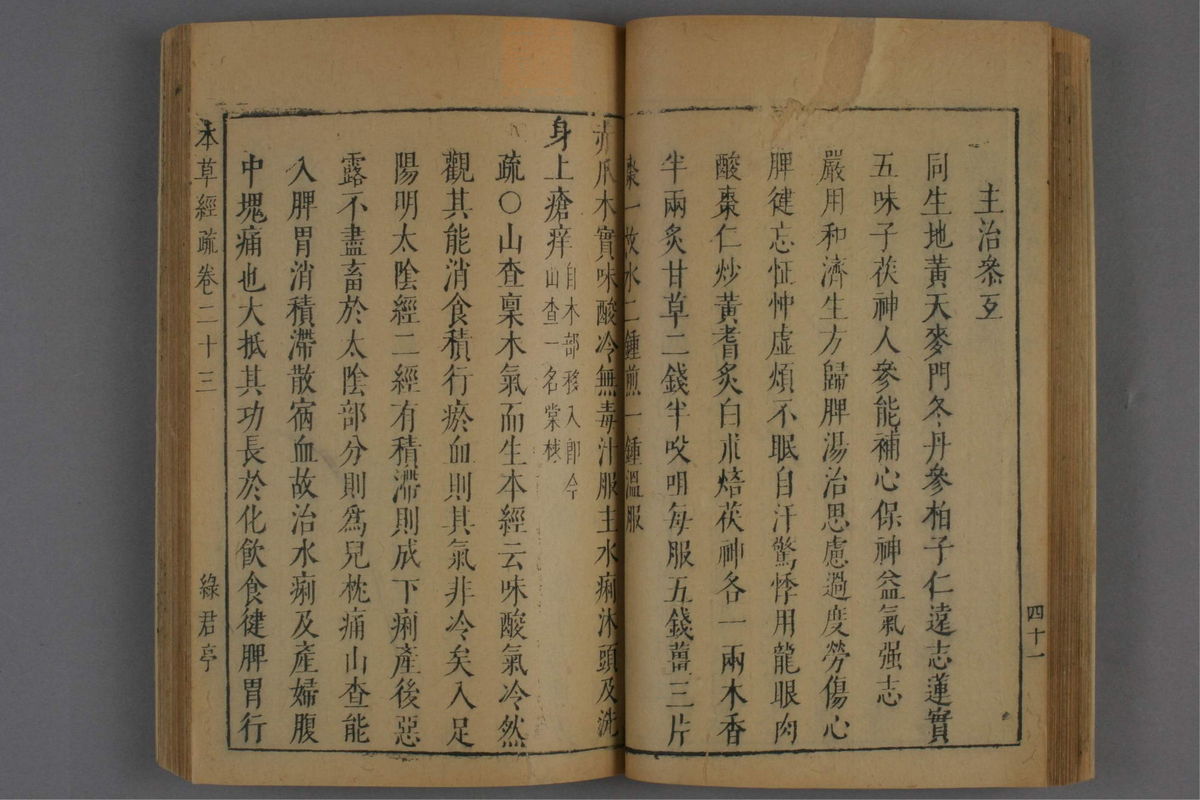 主治叅互
同生地黃天麥門冬丹參柏子仁遠志蓮實
五味子茯神人參能補心保神益氣强志
嚴用和濟生方歸脾湯治思慮過度勞傷心
脾健忘怔忡虛煩不眠自汗驚悸用龍眼肉
酸棗仁炒黃耆炙白朮焙茯神各一兩木香
半兩炙甘草二錢半㕮咀每服五錢薑三片
棗一枚水二鍾煎一鍾溫服
四十一
赤爪木實味酸冷無毒汁服主水痢沐頭及洗
身上瘡痒
自木部移入卽今
山查一名棠梂
疏〇山查稟木氣而生本經云味酸氣冷然
觀其能消食積行瘀血則其氣非冷矣入足
陽明太陰經二經有積滯則成下痢產後惡
露不盡畜於太陰部分則爲兒枕痛山查能
入脾胃消積滯散宿血故治水痢及產婦腹
中塊痛也大抵其功長於化飲食健脾胃行
本草經疏卷二十三
綠君亭